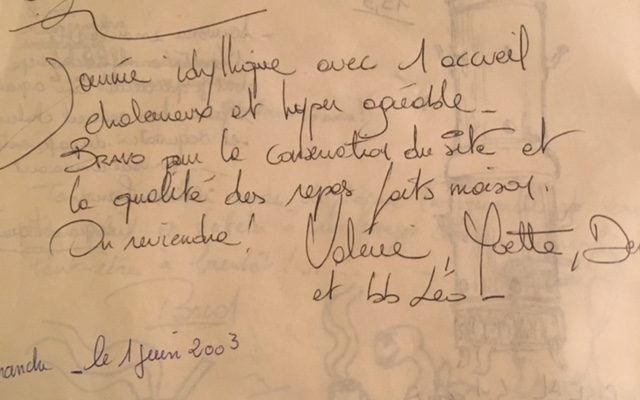 Journée idyllique avec 1 accueil
chaleureux et hyper agréable_
BRAVO pour la conservation du site et
la qualité des repas faits maison.
On reviendra! Valérie, Yvette, De
et bb Léo_
manda _ le 1 juin 2003